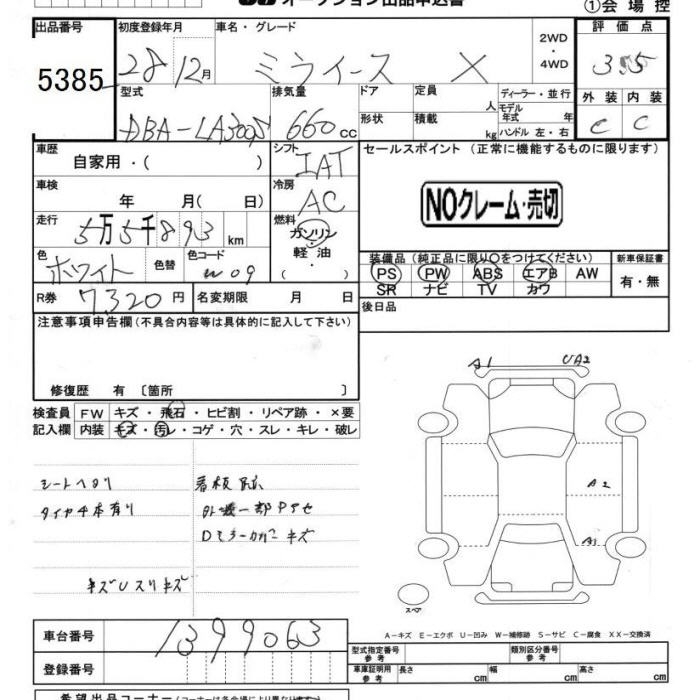 オークション出品申込書
①会場控
出品番号 初度登録年月 車名・グレード 評価点
5385 28 12月 ミライース X 2WD・4WD 3.5
型式 排気量 ドア 定員 ディーラー・並行 外装 内装
DBA-LA300S 660cc 形状 積載 人 kg モデル年式 年 ハンドル 左・右 C C
車歴 シフト セールスポイント (正常に機能するものに限ります)
自家用・( ) IAT
車検 冷房
年 月( 日) AC NOクレーム・売切
走行 燃料
5万5千893km ガソリン・軽油・( )
色 色替 色コード 装備品 (純正品に限り○をつけてください) 新車保証書
ホワイト W09 PS PW ABS エアB AW 有・無
SR ナビ TV カワ
R券 7320円 名変期限 月 日 後日品
注意事項申告欄(不具合内容等は具体的に記入して下さい)
修復歴 有 〔箇所 〕
検査員 FW キズ・飛石・ヒビ割・リペア跡・×要
記入欄 内装 キズ・汚レ・コゲ・穴・スレ・キレ・破レ
シートヘタリ
タイヤ4本有り
キズUスリキズ
看板跡
Dミラーカバーキズ
A1 UA2
A2
A1
スペア
A-キズ E-エクボ U-凹み W-補修跡 S-サビ C-腐食 XX-交換済
車台番号 1399063
登録番号
型式指定番号 参考 類別区分番号 参考
車庫証明用 参考 長さ cm 幅 cm 高さ cm
希望出品コーナー(コーナーは各会場により異なります)